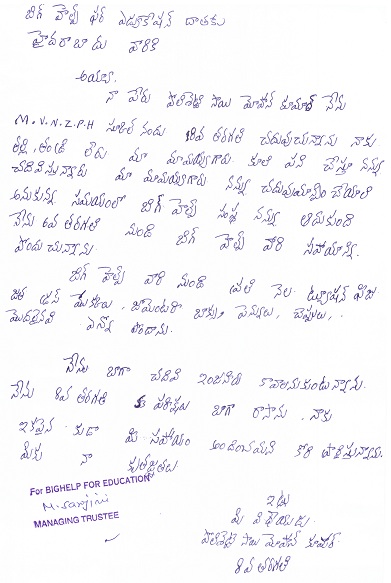 బిగ్ హెల్ప్ ఫర్ ఎడ్యుకేషన్ దాతకు
హైదరాబాదు వారికి
అయ్యా,
నా పేరు పోలిశెట్టి సాయి మోహన్ కుమార్ నేను
M.V.N.Z.P.H స్కూల్ నందు 8వ తరగతి చదువుచున్నాను నాకు
తల్లి తండ్రి లేరు మా మామయ్యగారు కూలి పని చేస్తూ నన్ను
చదివిస్తున్నాడు మా మామయ్యగారు నన్ను చదువు చేయాలి
అనుకున్న సమయంలో బిగ్ హెల్ప్ సంస్థ నన్ను ఆదుకుంది
నేను 6వ తరగతి నుండి బిగ్ హెల్ప్ వారి సహాయాన్ని
పొందుచున్నాను.
బిగ్ హెల్ప్ వారి నుండి ప్రతి నెల ట్యూషన్ ఫీజు
జత పుస్తకాలు, జామెంటరీ బాక్సు, పెన్నులు, చెప్పులు,
మొదలైనవి ఎన్నో పొందాను.
నేను బాగా చదివి ఇంజనీరు కావాలనుకుంటున్నాను.
నేను 8వ తరగతి పరీక్షలు బాగా రాసాను. నాకు
ఇకపైన కుడా మీ సహాయం అందించమని కోరి ప్రార్థిస్తున్నాను.
మీకు నా కృతజ్ఞతలు
For BIGHELP FOR EDUCATION
M. Sanjini
MANAGING TRUSTEE
ఇట్లు
మీ విధేయుడు.
పోలిశెట్టి సాయి మోహన్ కుమార్
8వ తరగతి